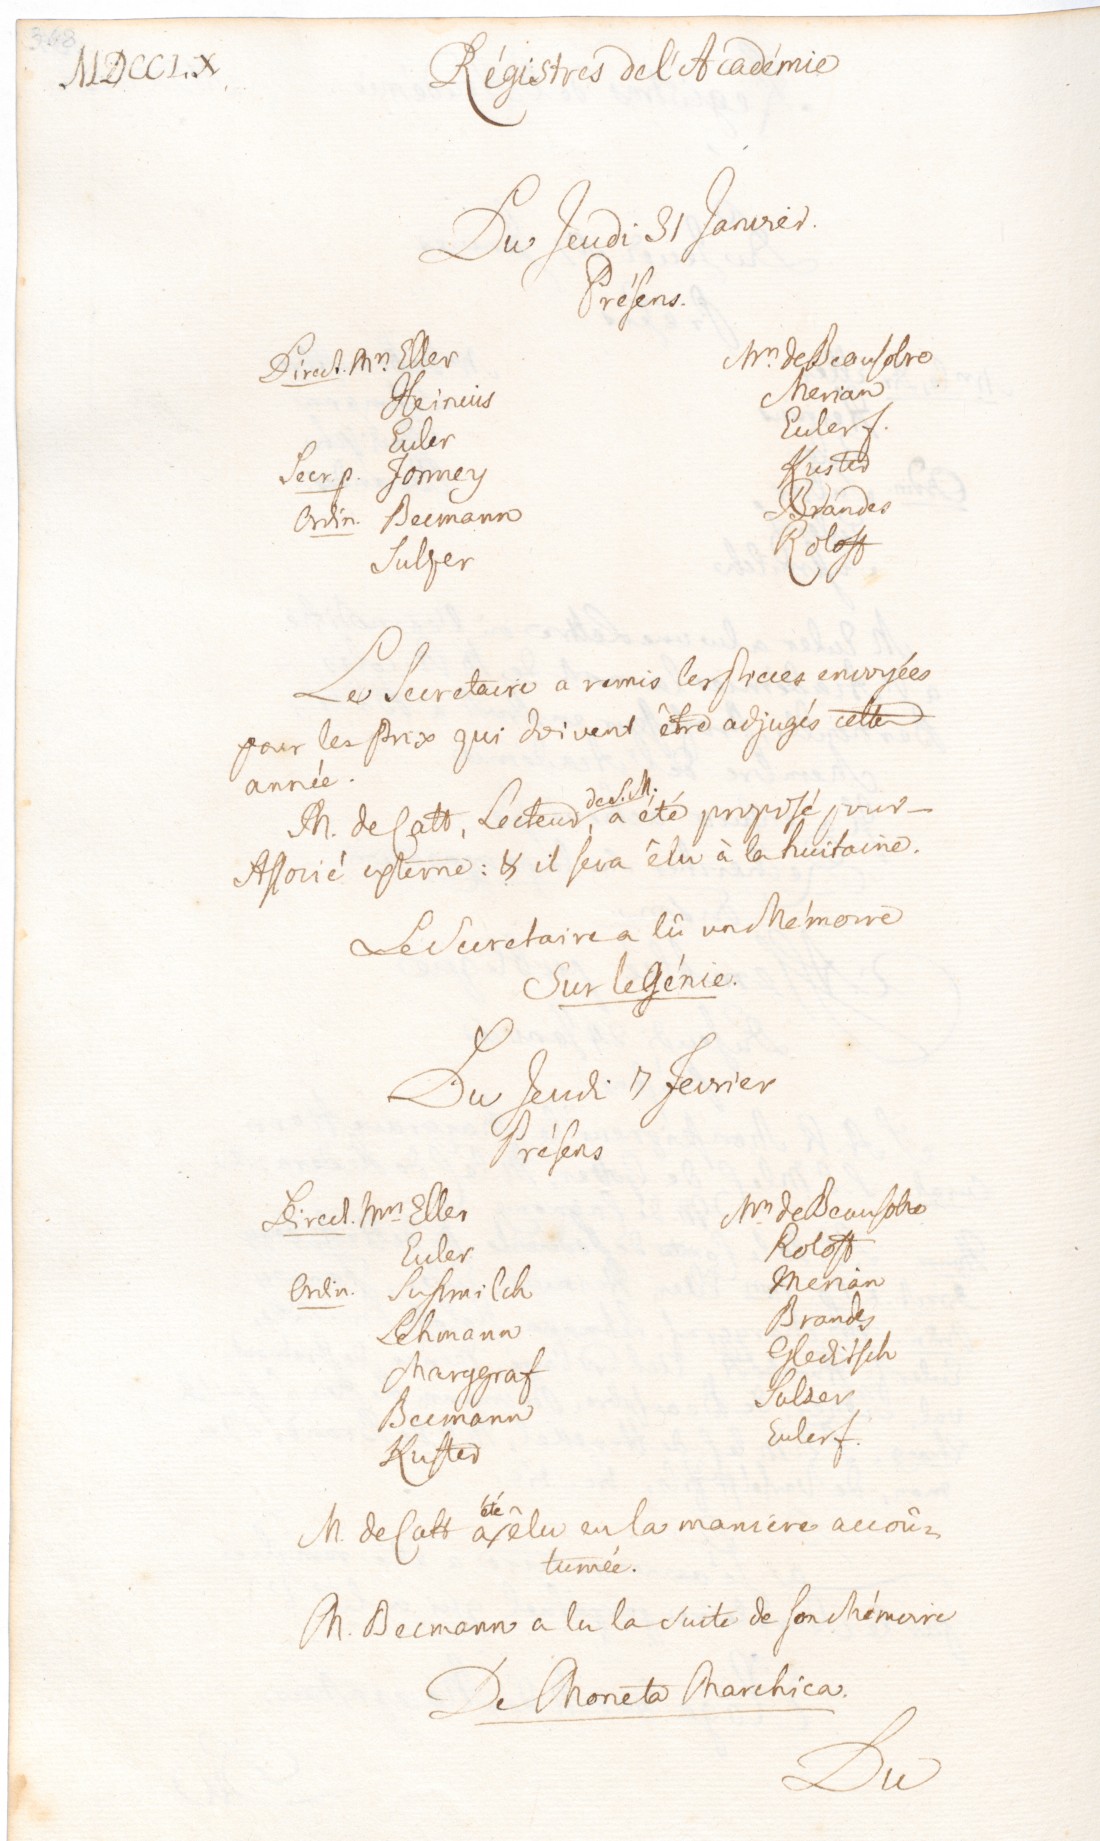 368
MDCCLX
Régistres de l'Académie
Du Jeudi 31 Janvier.
Présens.
Direct. Mrs. Eller
Heinius
Euler
Secr. p. Formey
Ordin. Becmann
Sulzer
Mrs. de Beausobre
Merian
Euler f.
Kuster
Brandes
Roloff
Le Secretaire a remis les pieces envoyées
pour les Prix qui doivent être adjugés cette
année.
M. de Catt, Lecteur de S. M. a été proposé pour
Associé externe: & il sera êlu à la huitaine.
Le Secretaire a lû un Mémoire
Sur le Génie.
Du Jeudi 7 Fevrier
Présens
Direct. Mrs. Eller
Euler
Ordin. Susmilch
Lehmann
Marggraf
Becmann
Kuster
Mrs. de Beausobre
Roloff
Merian
Brandes
Gleditsch
Sulzer
Euler f.
M. de Catt a été êlu en la maniere accoû-
tumée.
M. Becmann a lu la suite de son Mémoire
De Moneta Marchica.
Du